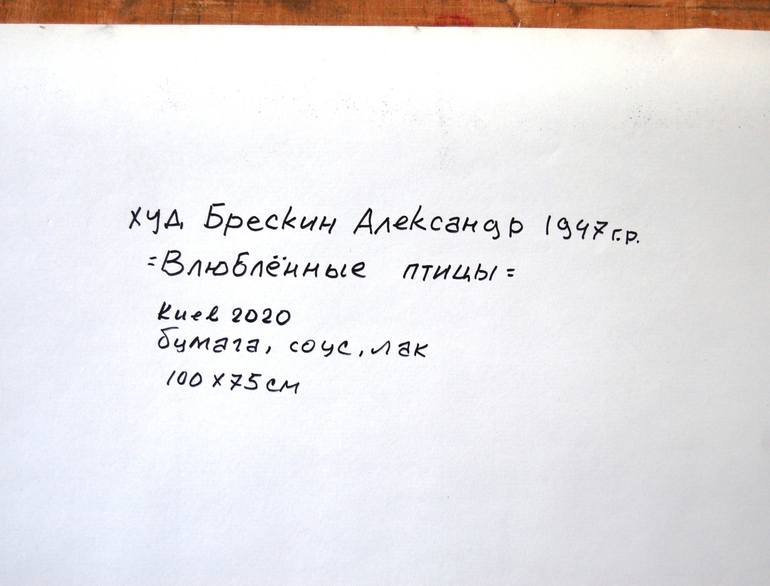 худ Брескин Александр 1947 г.р.
=Влюблённые птицы=
Киев 2020
бумага, соус, лак
100 х 75 см